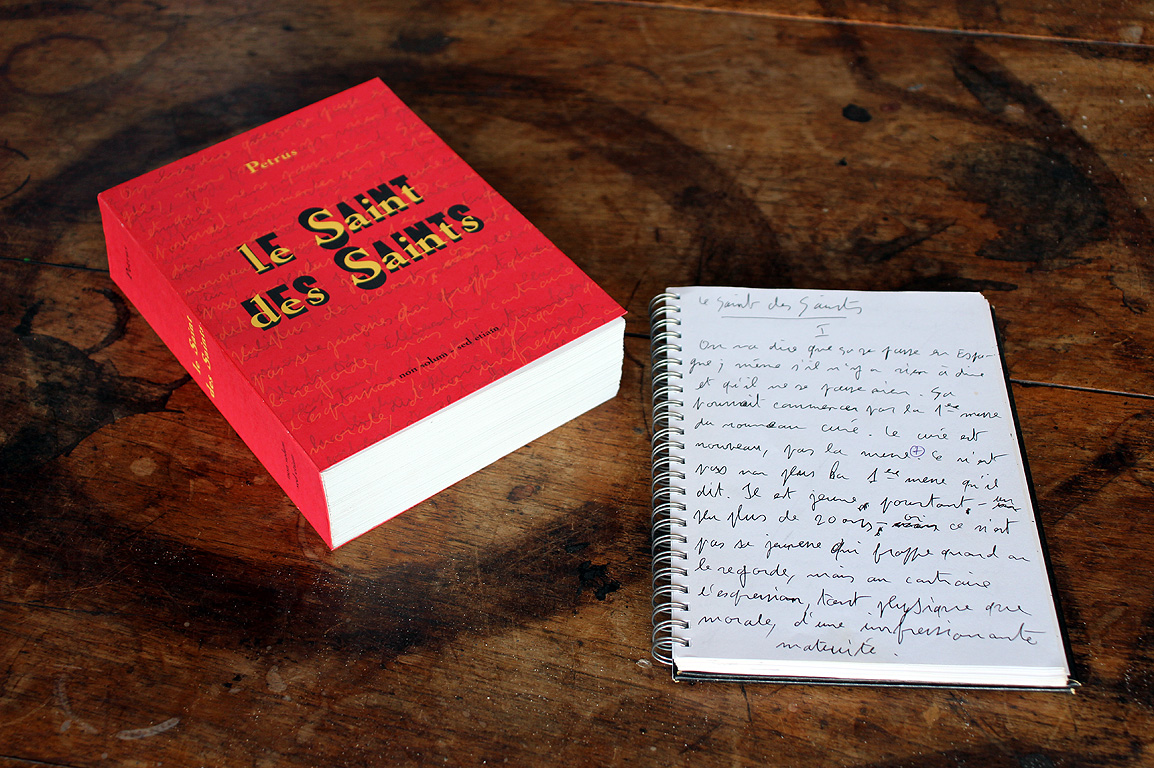 Petrus
le Saint
des Saints
non solum - sed etiam
Petrus
le Saint
des Saints
Le Saint des Saints
I
On va dire que ça se passe en Espa-
gne ; même s'il n'y a rien à dire
et qu'il ne se passe rien. Ça
pourrait commencer par la 1ère messe
du nouveau curé. Le curé est
nouveau, pas la messe + Ce n'est
pas non plus la 1ère messe qu'il
dit. Il est jeune, pourtant, - un
peu plus de 20 ans, - ce n'est
pas sa jeunesse qui frappe quand on
le regarde, mais au contraire
l'expression, tant physique que
morale, d'une impressionnante
maturité.